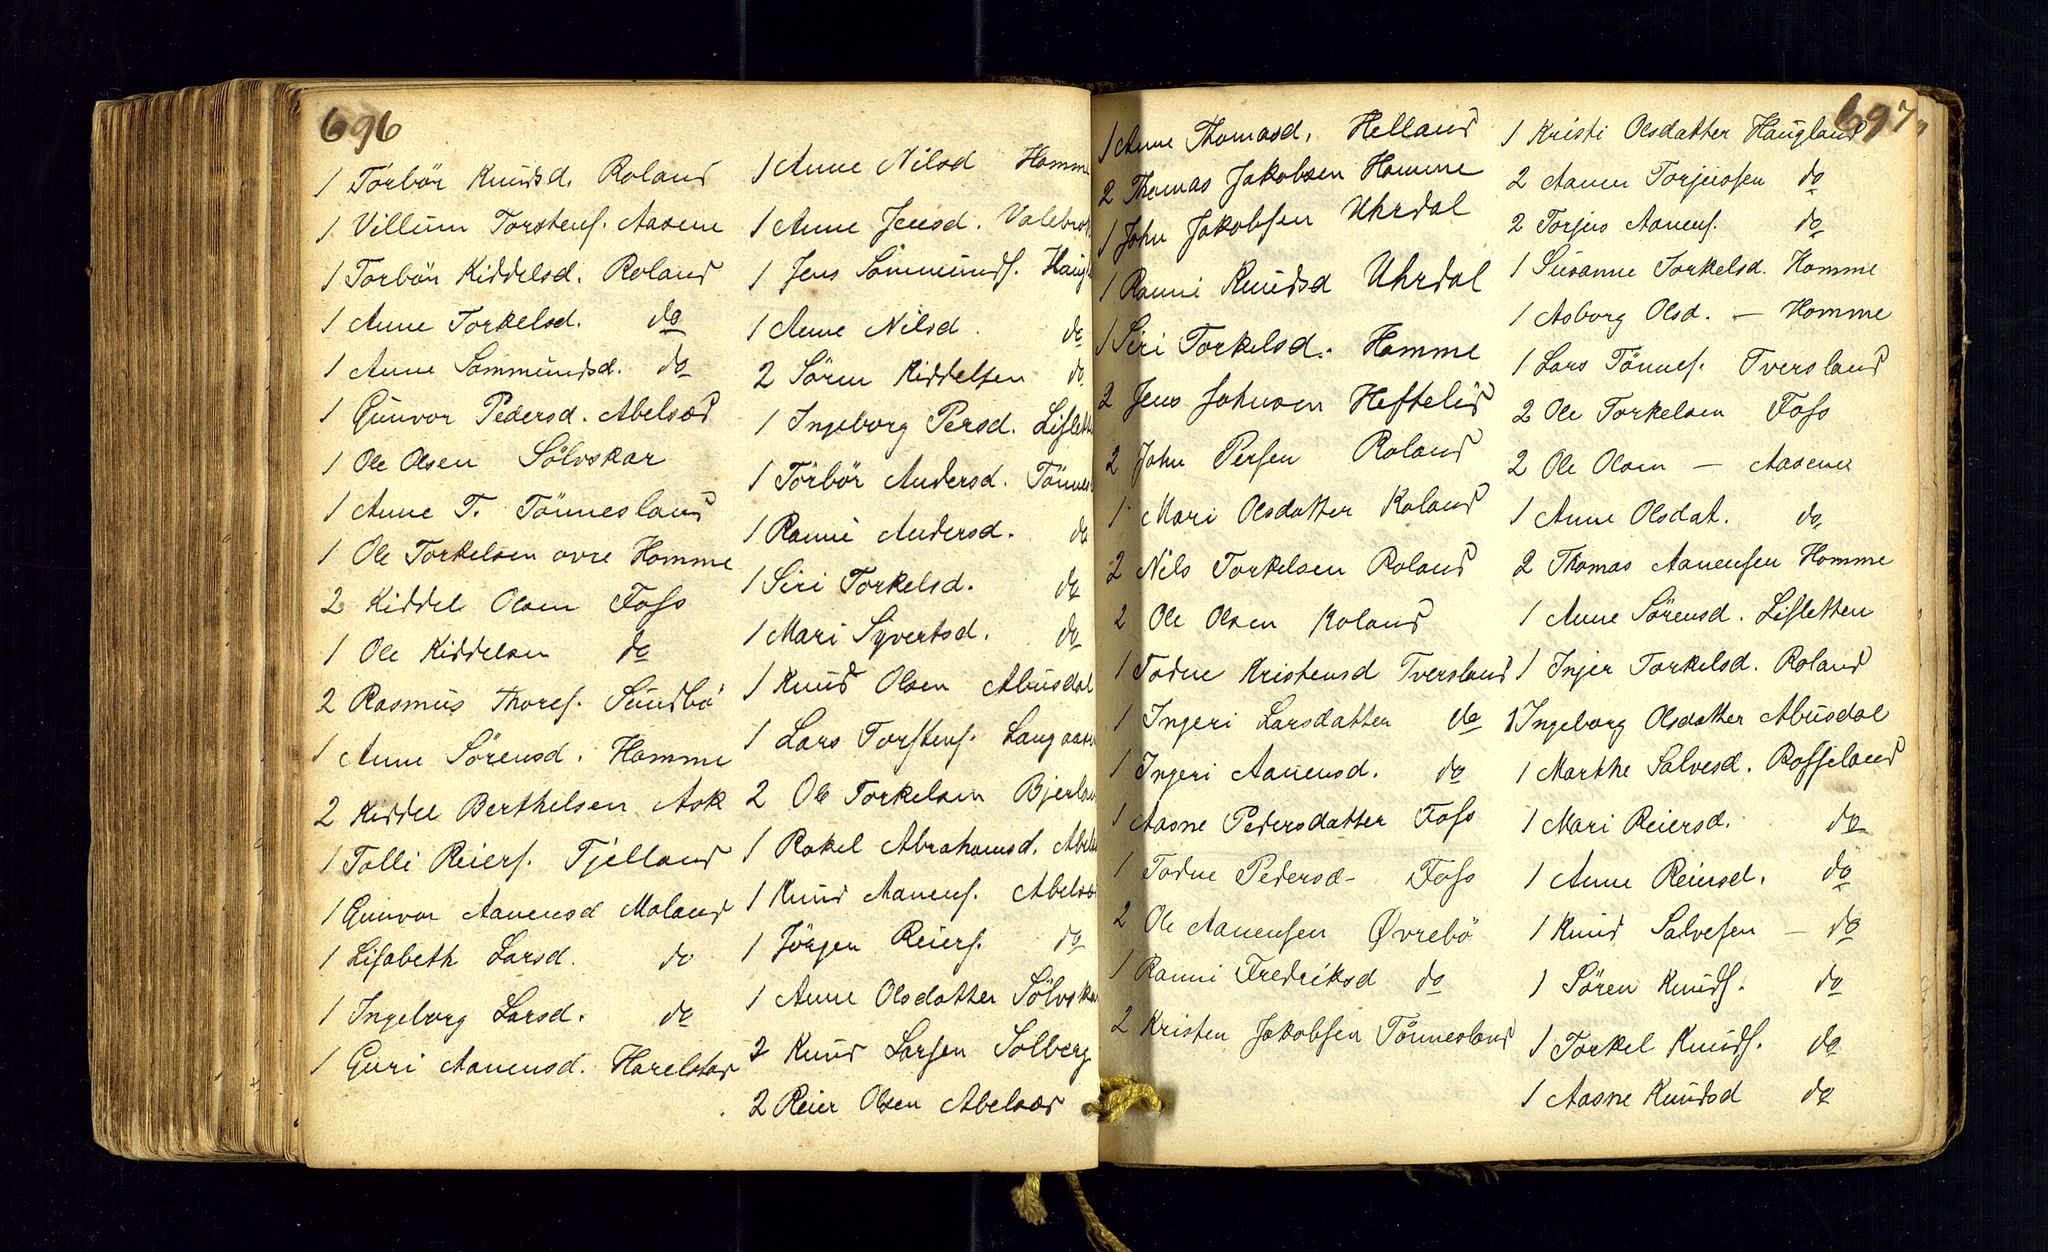 696
1 Törbör Knudsd. Roland
1 Villum Torstens. Aasene
1 Torbör Kiddelsd. Roland
1 Anne Torkelsd. do
1 Anne Sommundsd. do
1 Gunvor Pedersd. Abelsæd
1 Ole Olsen Sölvskar
1 Anne T. Tönnesland
1 Ole Torkelsen ovre Homme
2 Kiddel Olsen Foss
1 Ole Kiddelsen do
2 Rasmus Thores. Sundbö
1 Anne Sörensd. Homme
2 Kiddel Berthelsen Ask
1 Tolli Reiers. Tjelland
1 Gunvor Aanensd Moland
1 Lisabeth Larsd. do
1 Ingeborg Larsd. do
1 Guri Aanensd. Harelstad
1 Anne Nilsd Homme
1 Anne Jensd. Valebrok
1 Jens Sommunds. Haugl
1 Anne Nilsd. do
2 Sören Kiddelsen do
1 Ingeborg Persd. Lislett
1 Törbör Andersd. Tönnes
1 Ranni Andersd. do
1 Siri Torkelsd. do
1 Mari Syvertsd. do
1 Knud Olsen Abusdal
1 Lars Torstens. Langaasen
2 Ole Torkelsen Bjerlan
1 Rakel Abrahamsd. Abels
1 Knud Aanens. Abelsæ
1 Jörgen Reiers. do
1 Anne Olsdatter Sölvskar
2 Knud Larsen Solberg
2 Reier Olsen Abelsæd
697
1 Anne Thomasd. Helland
2 Thomas Jakobsen Homme
1 John Jakobsen Uhrdal
1 Ranni Knudsd Uhrdal
1 Siri Torkelsd. Homme
2 Jens Johnsen Heftelid
2 John Persen Roland
1 Mari Olsdatter Roland
2 Nils Torkelsen Roland
2 Ole Olsen Roland
1 Todne Kristensd Tversland
1 Ingeri Larsdatter do
1 Ingeri Aanensd. do
1 Aasne Pedersdatter Foss
1 Todne Pedersd- Foss
2 Ole Aanensen Øvrebö
1 Ranni Fredriksd do
2 Kristen Jakobsen Tönnesland
1 Kristi Olsdatter Haugland
2 Aanen Torjussen do
2 Torjus Aanens. do
1 Susanne Torkelsd. Homme
1 Asborg Olsd. — Homme
1 Lars Tönnes. Tversland
2 Ole Torkelsen Foss
2 Ole Olsen — Aasene
1 Anne Olsdat. do
2 Thomas Aanensen Homme
1 Anne Sörensd. Lisletten
1 Injer Torkelsd. Roland
1 Ingeborg Olsdatter Abusdal
1 Marthe Salvesd. Rosseland
1 Mari Reiersd. do
1 Anne Reiersd. do
1 Knud Salvesen — do
1 Sören Knuds. do
1 Torkel Knuds. do
1 Aasne Knudsd do